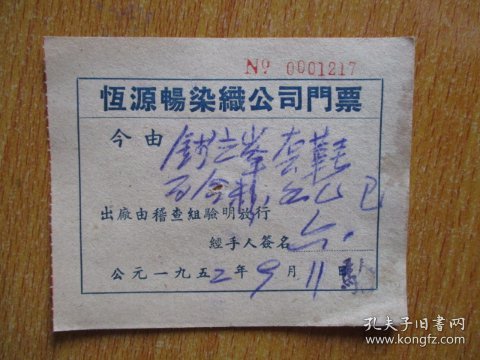 No 0001217
恆源暢染織公司門票
今由 錢之峯套鞋
出廠由稽查組驗明放行
經手人簽名
公元一九五2年9月11日
孔夫子旧书网
www.kongfz.com